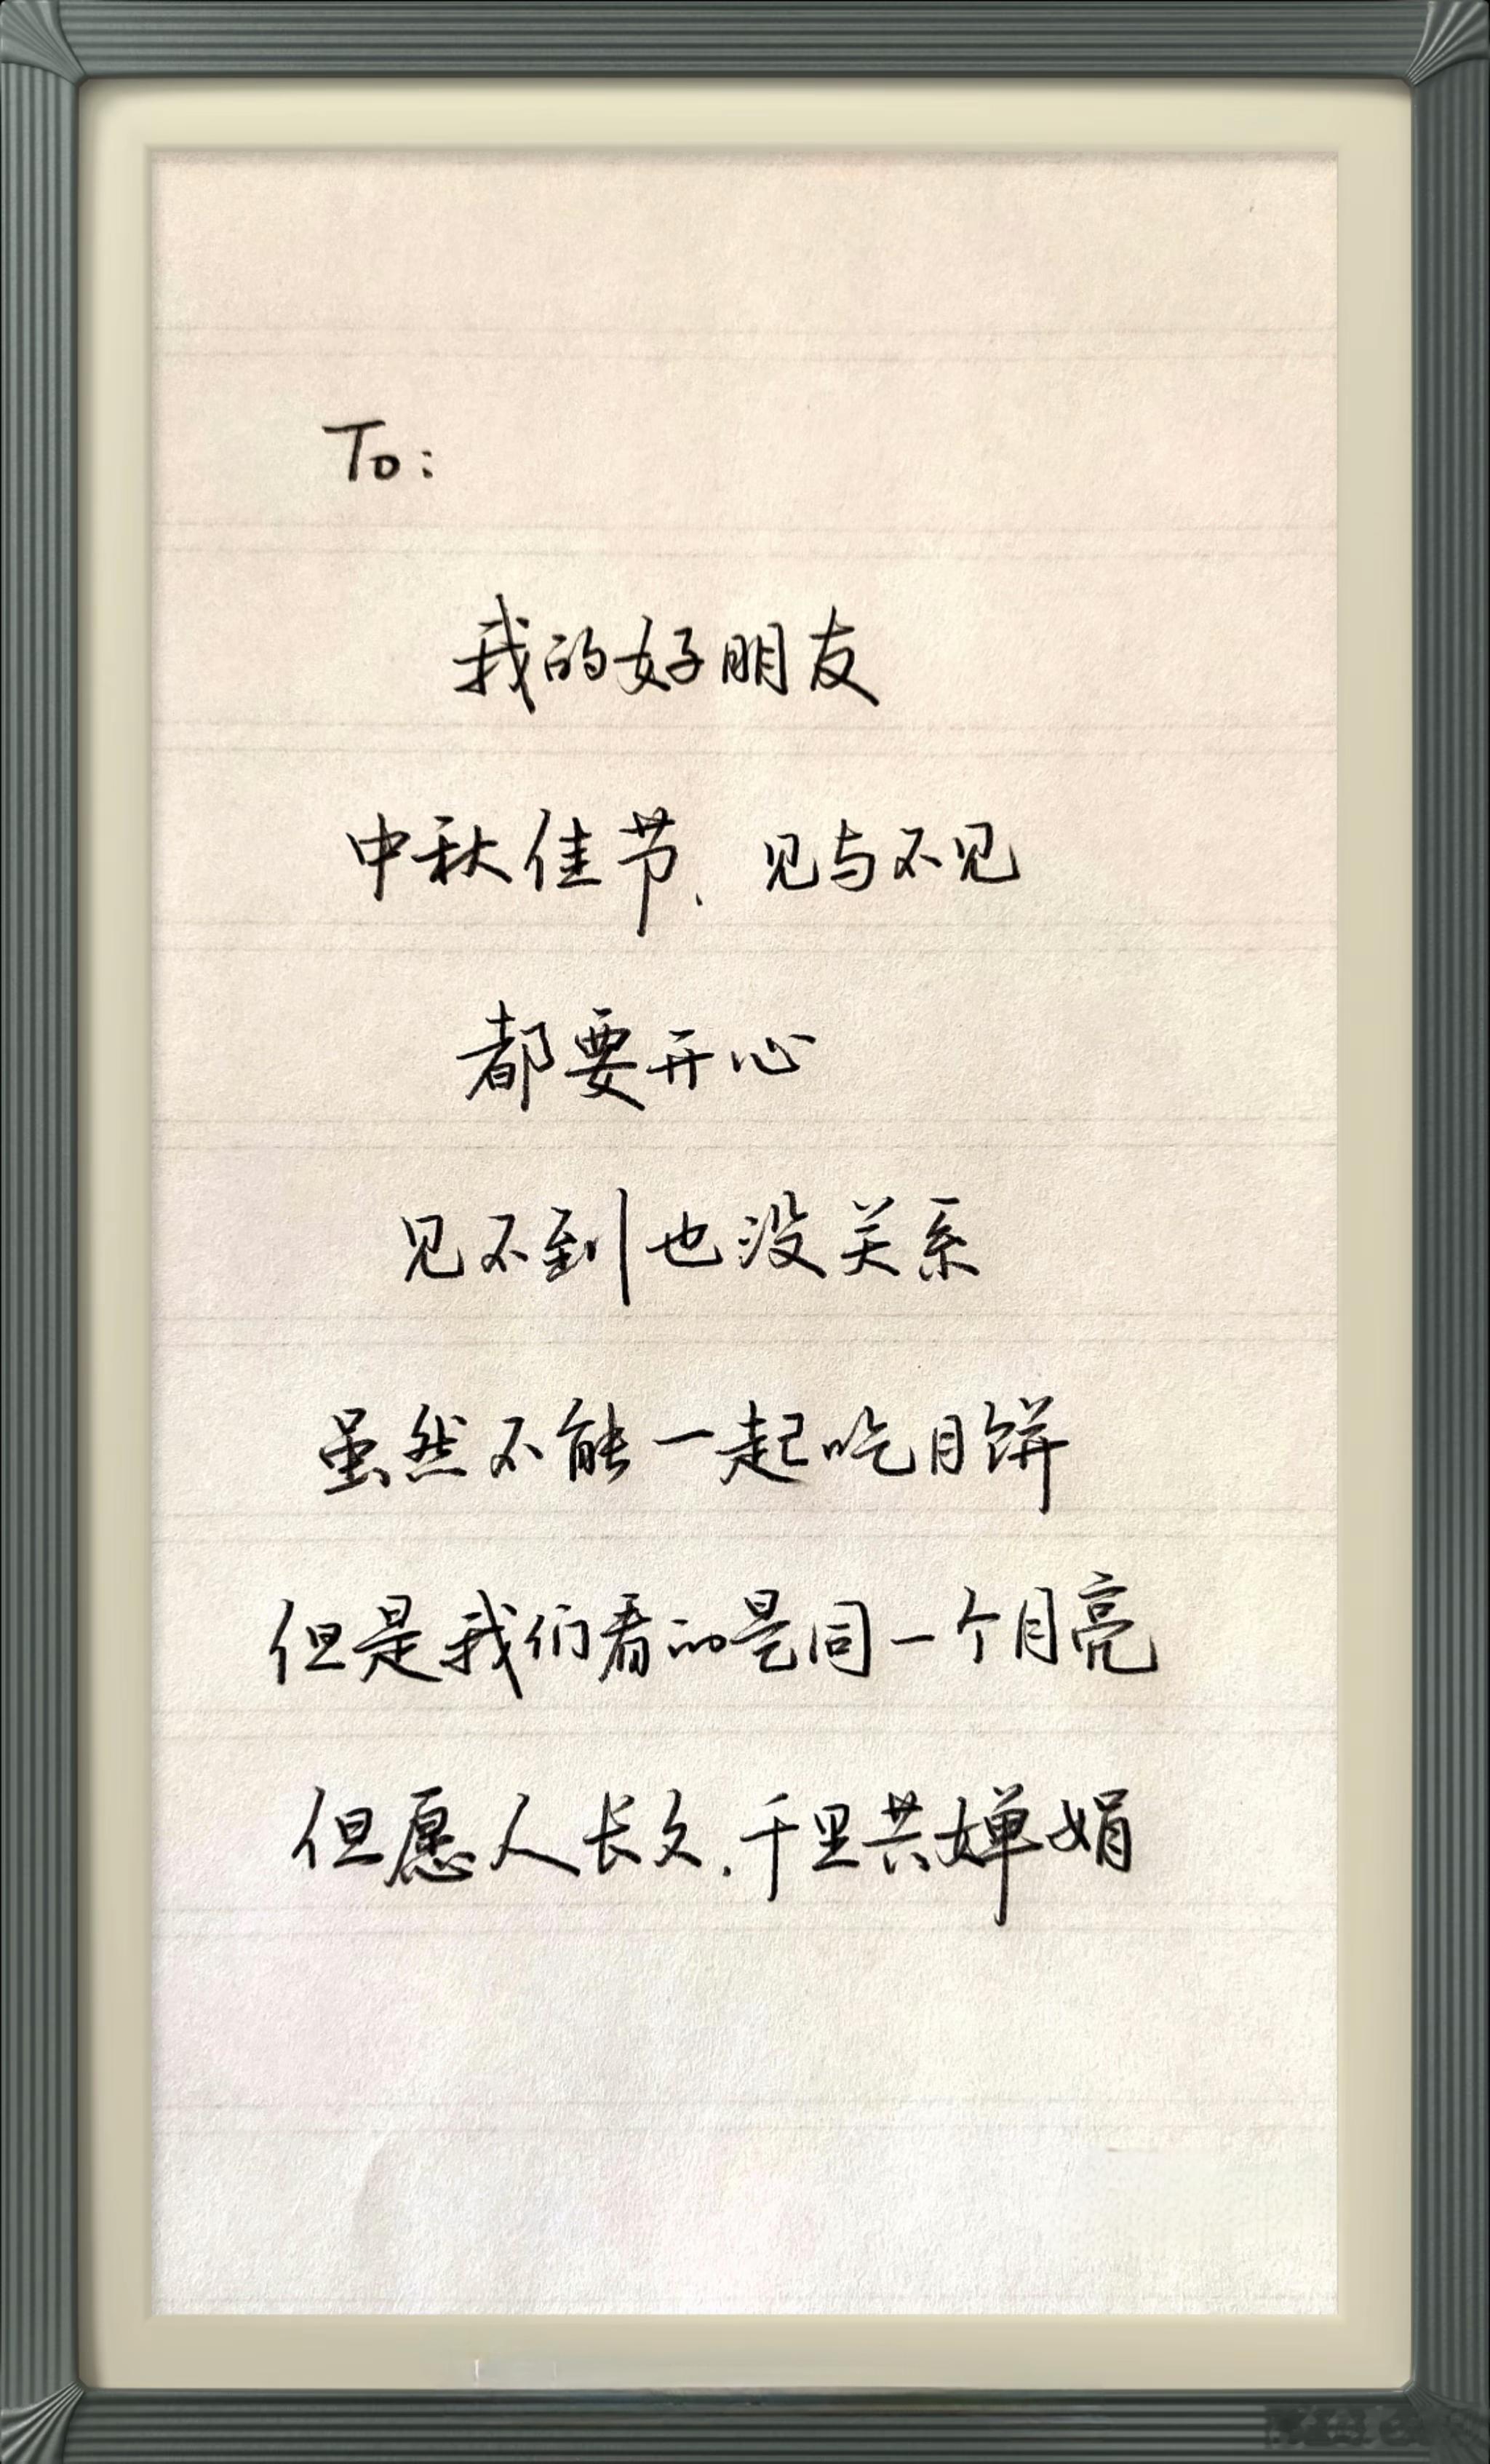 To:
我的好朋友
中秋佳节、见与不见
都要开心
见不到也没关系
虽然不能一起吃月饼
但是我们看的是同一个月亮
但愿人长久.千里共婵娟